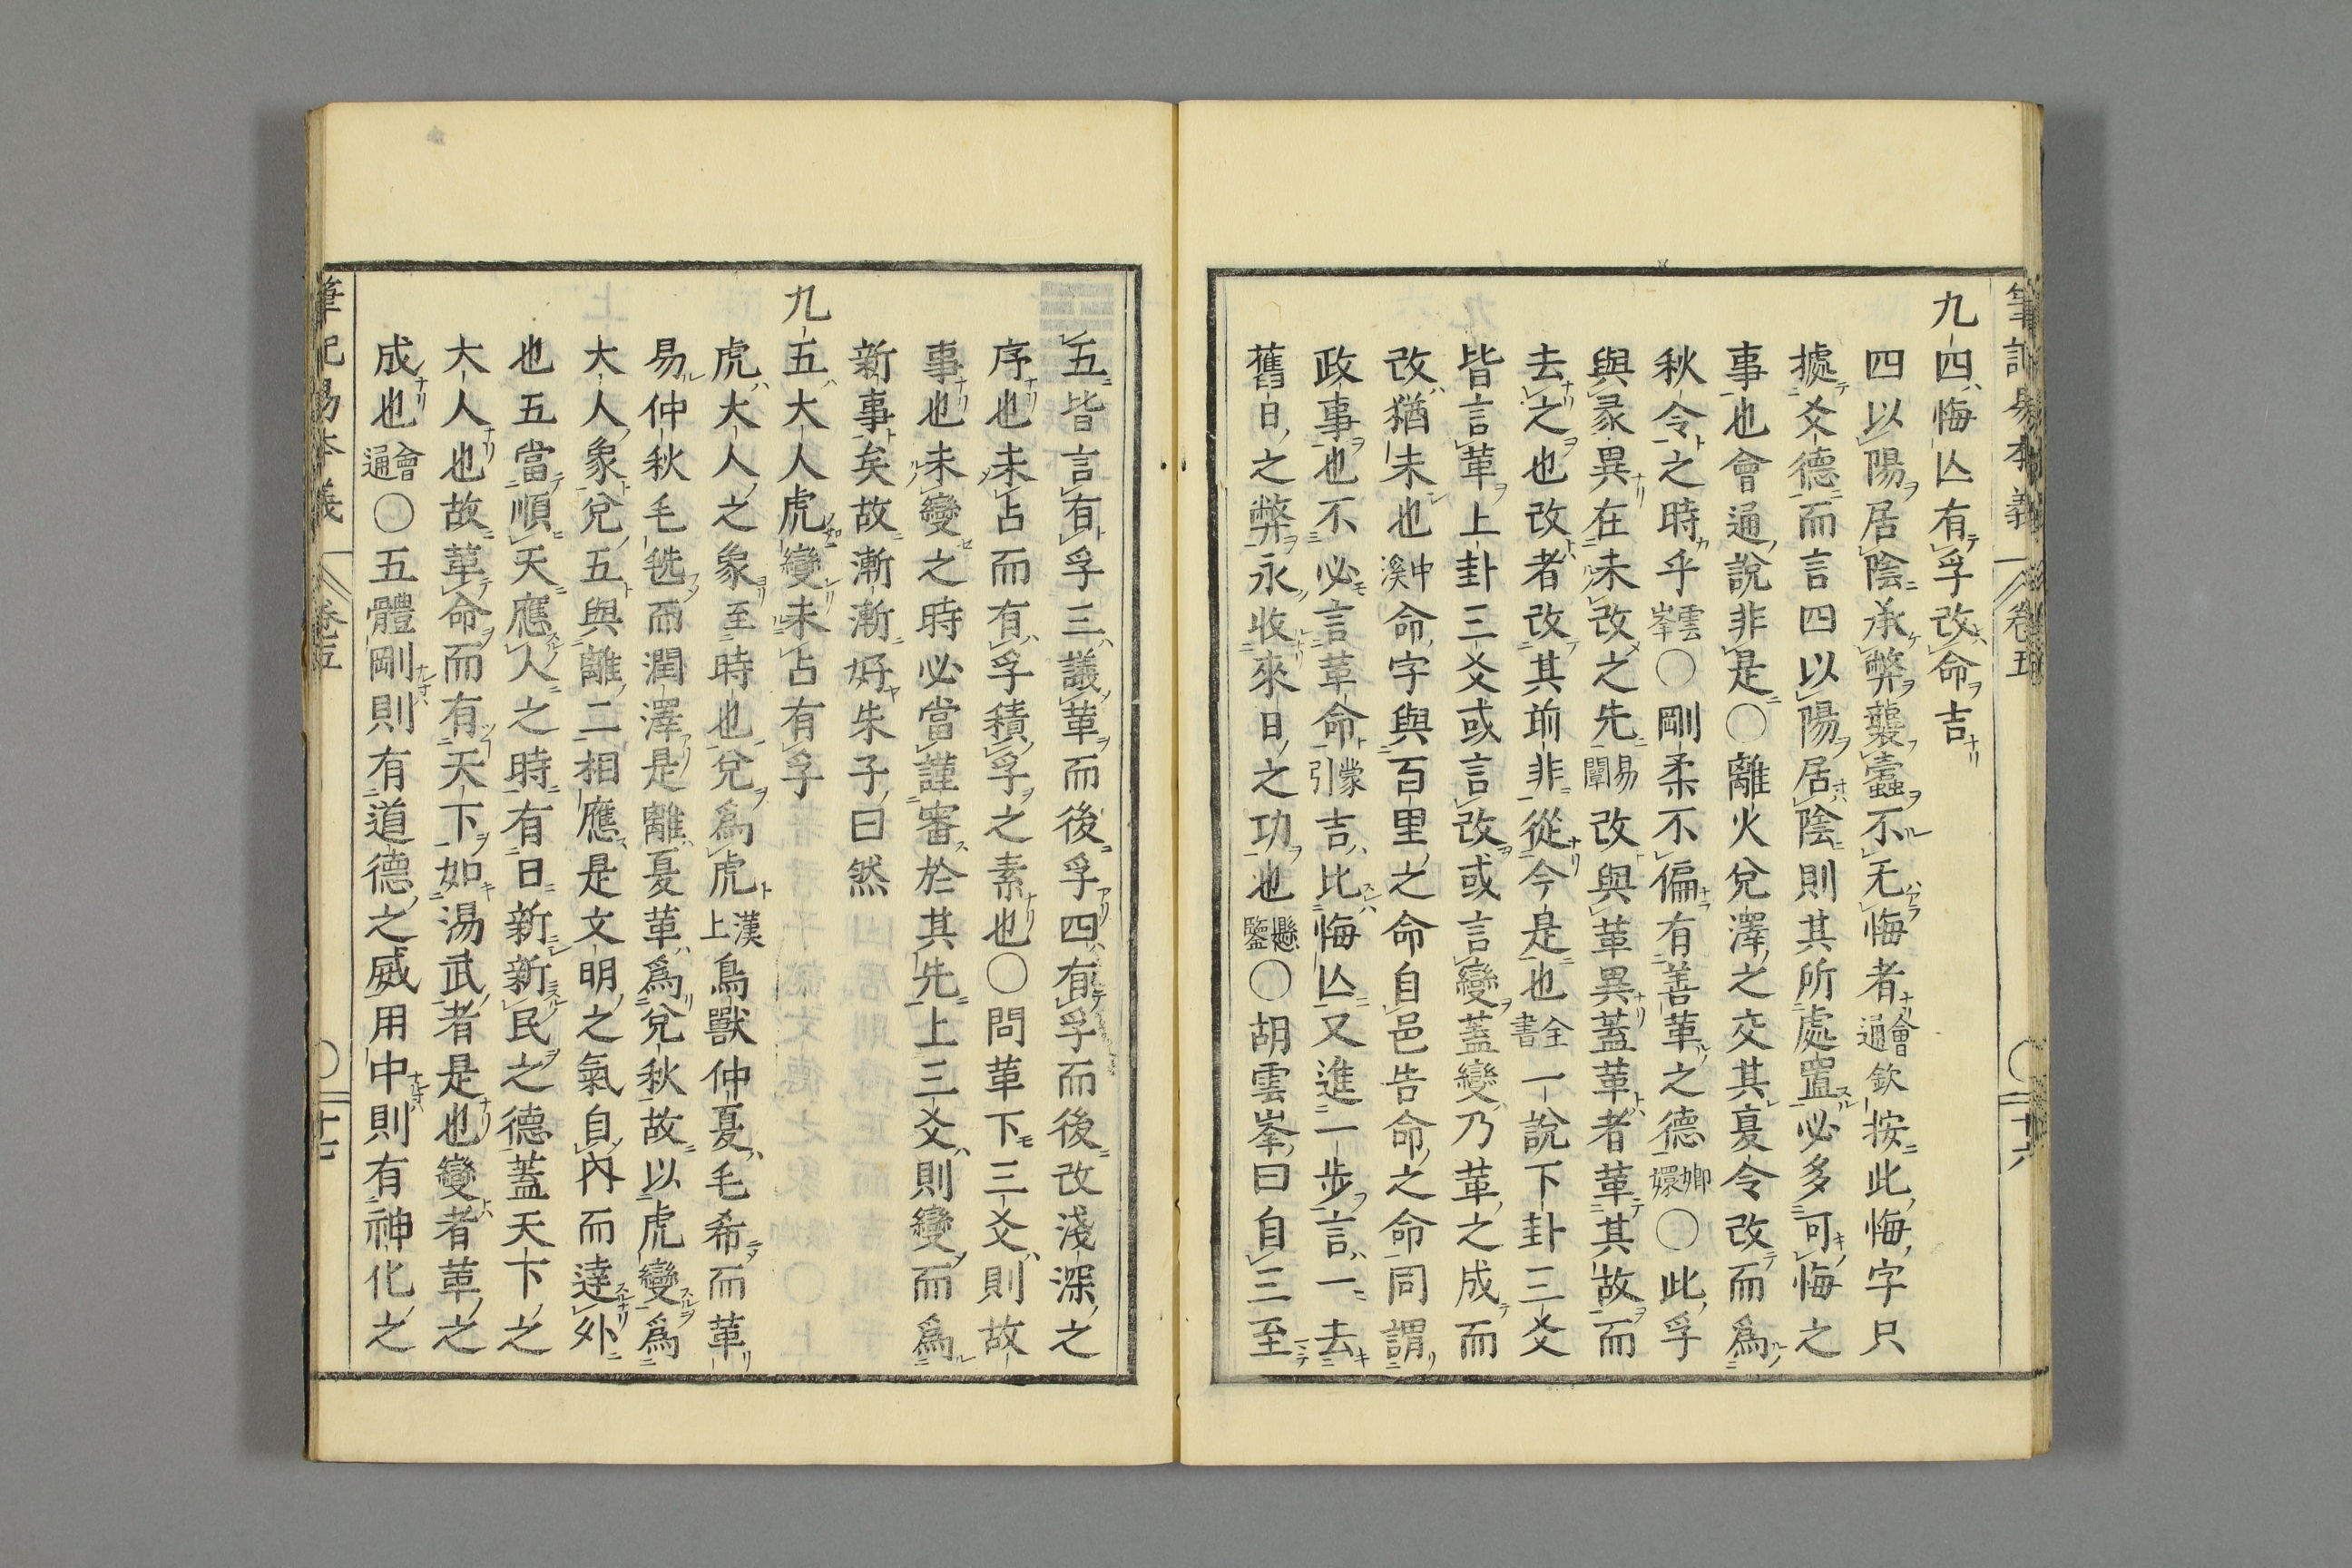 筆記易本義 卷五 〇二十六
九四悔亾有孚改命吉
四以陽居陰承弊襲蠧不无悔者會通欽按此悔字只
據爻德而言四以陽居陰則其所處置必多可悔之
事也會通說非是〇離火兌澤之交其夏令改而爲
秋令之時乎雲峯〇剛柔不偏有善革之德嫏嬛〇此孚
與彖異在未改之先易闡改與革異蓋革者革其故而
去之也改者改其前非從今是也全書一說下卦三爻
皆言革上卦三爻或言改或言變蓋變乃革之成而
改猶未也中溪命字與百里之命自邑告命之命同謂
政事也不必言革命蒙引吉比悔亾又進一步言一去
舊日之弊永收來日之功也懸鑒〇胡雲峯曰自三至
五皆言有孚三議革而後孚四有孚而後改淺深之
序也未占而有孚積孚之素也〇問革下三爻則故
事也未變之時必當謹審於其先上三爻則變而爲
新事矣故漸漸好朱子曰然
九五大人虎變未占有孚
虎大人之象至時也兌爲虎漢上鳥獸仲夏毛希而革
易仲秋毛毨而潤澤是離夏革爲兌秋故以虎變爲
大人象兌五與離二相應是文明之氣自內而達外
也五當順天應人之時有日新新民之德蓋天下之
大人也故革命而有天下如湯武者是也變者革之
成也會通〇五體剛則有道德之威用中則有神化之
筆記易本義 卷五 〇二十七